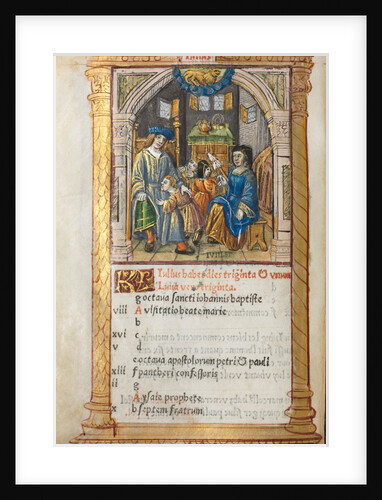 KL Iulius habet dies triginta & vnum
Luna vero triginta.
g octaua sancti iohannis baptiste
viii A visitatio beate marie
b
xvi c
v d
e octaua apostolorum petri & pauli
xiii f pantheri confessoris
ii g
A ysaie prophete
x b septem fratrum